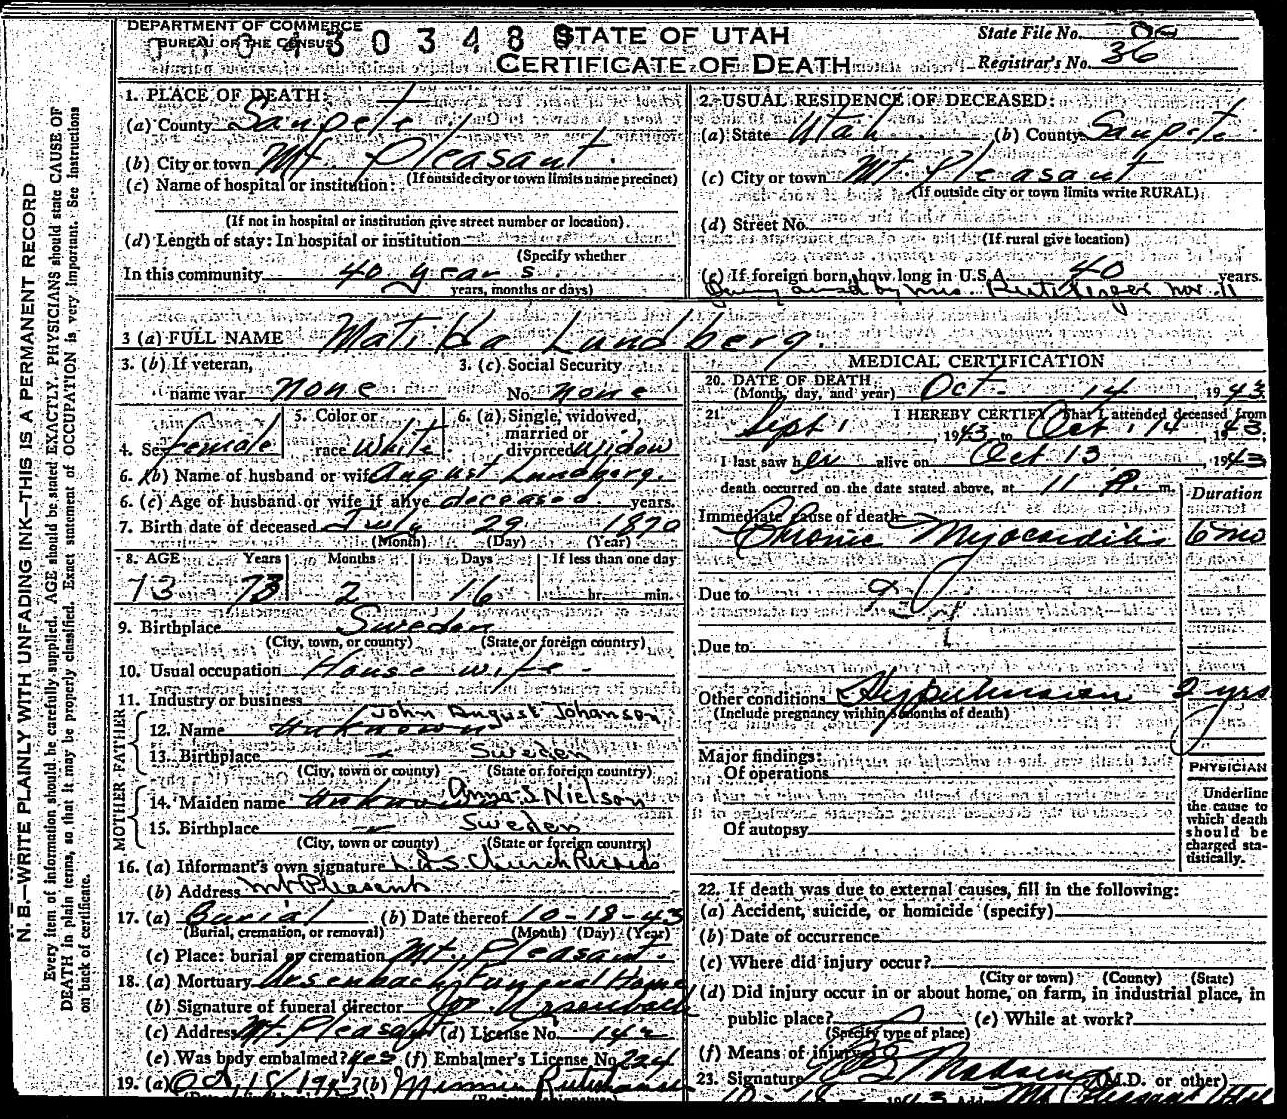 DEPARTMENT OF COMMERCE
BUREAU OF THE CENSUS
STATE OF UTAH
CERTIFICATE OF DEATH
State File No.
Registrar's No. 36
N. B.—WRITE PLAINLY WITH UNFADING INK—THIS IS A PERMANENT RECORD
Every item of information should be carefully supplied. AGE should be stated EXACTLY. PHYSICIANS should state CAUSE OF
DEATH in plain terms, so that it may be properly classified. Exact statement of OCCUPATION is very important. See Instructions
on back of certificate.
1. PLACE OF DEATH:
(a) County Sanpete
(b) City or town Mt. Pleasant.
(If outside city or town limits name precinct)
(c) Name of hospital or institution:
(If not in hospital or institution give street number or location)
(d) Length of stay: In hospital or institution
(Specify whether
In this community 40 years.
years, months or days)
2. USUAL RESIDENCE OF DECEASED:
(a) State Utah (b) County Sanpete.
(c) City or town Mt. Pleasant
(If outside city or town limits write RURAL)
(d) Street No.
(If rural give location)
(e) If foreign born, how long in U.S.A. 40 years.
3 (a) FULL NAME Matilda Lundberg.
3. (b) If veteran, 3. (c) Social Security
name war none No. none
4. Sex female 5. Color or race White 6. (a) Single, widowed, married or divorced Widow
6. (b) Name of husband or wife August Lundberg.
6. (c) Age of husband or wife if alive deceased years.
7. Birth date of deceased July 29 1870
(Month) (Day) (Year)
8. AGE Years Months Days If less than one day
73 73 2 16 hr. min.
9. Birthplace Sweden
(City, town, or county) (State or foreign country)
10. Usual occupation House wife -
11. Industry or business
FATHER
John August Johanson
12. Name unknown
13. Birthplace — Sweden
(City, town or county) (State or foreign country)
MOTHER
14. Maiden name unknown Anna S. Nielson
15. Birthplace — Sweden
(City, town or county) (State or foreign country)
16. (a) Informant's own signature L.D.S. Church Records
(b) Address Mt Pleasant
17. (a) Burial (b) Date thereof 10-18-43
(Burial, cremation, or removal) (Month) (Day) (Year)
(c) Place: burial or cremation Mt. Pleasant.
18. (a) Mortuary Ursenbach Funeral Home
(b) Signature of funeral director Ursenbach
(c) Address Mt. Pleasant (d) License No. 142
(e) Was body embalmed? Yes (f) Embalmer's License No. 224
19. (a) Oct. 18/1943 (b) Minnie
MEDICAL CERTIFICATION
20. DATE OF DEATH Oct. 14 1943
(Month, day, and year)
21. I HEREBY CERTIFY, That I attended deceased from
Sept 1, 1943 to Oct. 14 1943.
I last saw her alive on Oct 13, 1943
death occurred on the date stated above, at 11 P. m.
Duration
Immediate Cause of death
Chronic Myocarditis 6 mo
Due to
Due to
Other conditions Hypertension 2 yrs
(Include pregnancy within 3 months of death)
Major findings:
Of operations
Of autopsy
PHYSICIAN
Underline
the cause to
which death
should be
charged sta-
tistically.
22. If death was due to external causes, fill in the following:
(a) Accident, suicide, or homicide (specify)
(b) Date of occurrence
(c) Where did injury occur?
(City or town) (County) (State)
(d) Did injury occur in or about home, on farm, in industrial place, in
public place? (e) While at work?
(Specify type of place)
(f) Means of injury
23. Signature Madsen (M.D. or other)